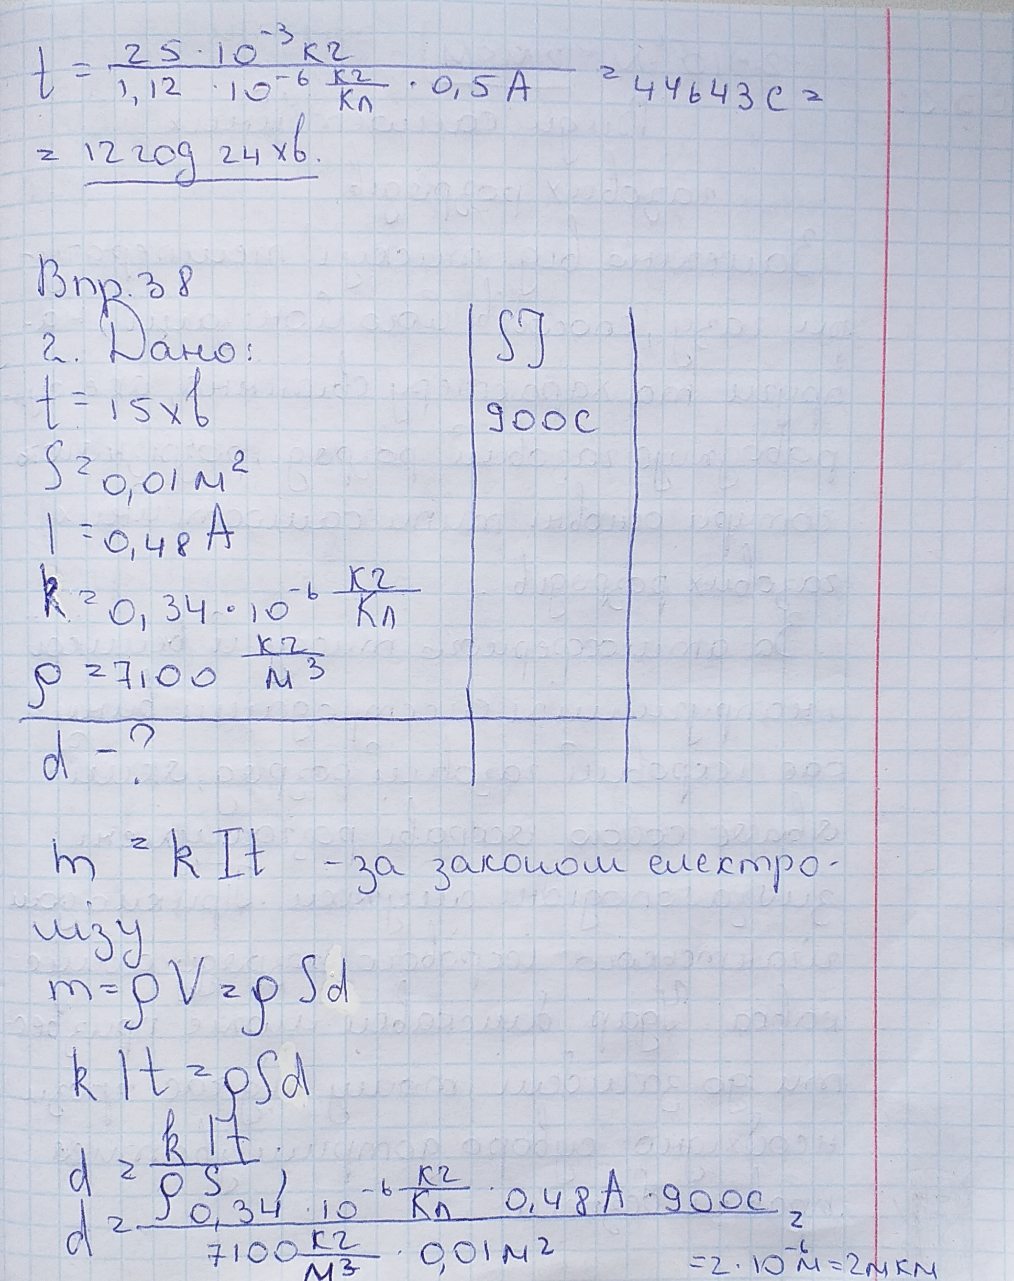 t = 25 · 10⁻³ кг / 1,12 · 10⁻⁶ кг/Кл · 0,5 А = 44643 с =
= 12 год 24 хв.
Впр. 38
2. Дано:
SI
t = 15 хв
900 с
S = 0,01 м²
I = 0,48 А
k = 0,34 · 10⁻⁶ кг/Кл
ρ = 7100 кг/м³
d - ?
m = k I t - за законом електро-
лізу
m = ρ V = ρ S d
k I t = ρ S d
d = k I t / ρ S ,
d = 0,34 · 10⁻⁶ кг/Кл · 0,48 А · 900 с / 7100 кг/м³ · 0,01 м² =
= 2 · 10⁻⁶ м = 2 мкм